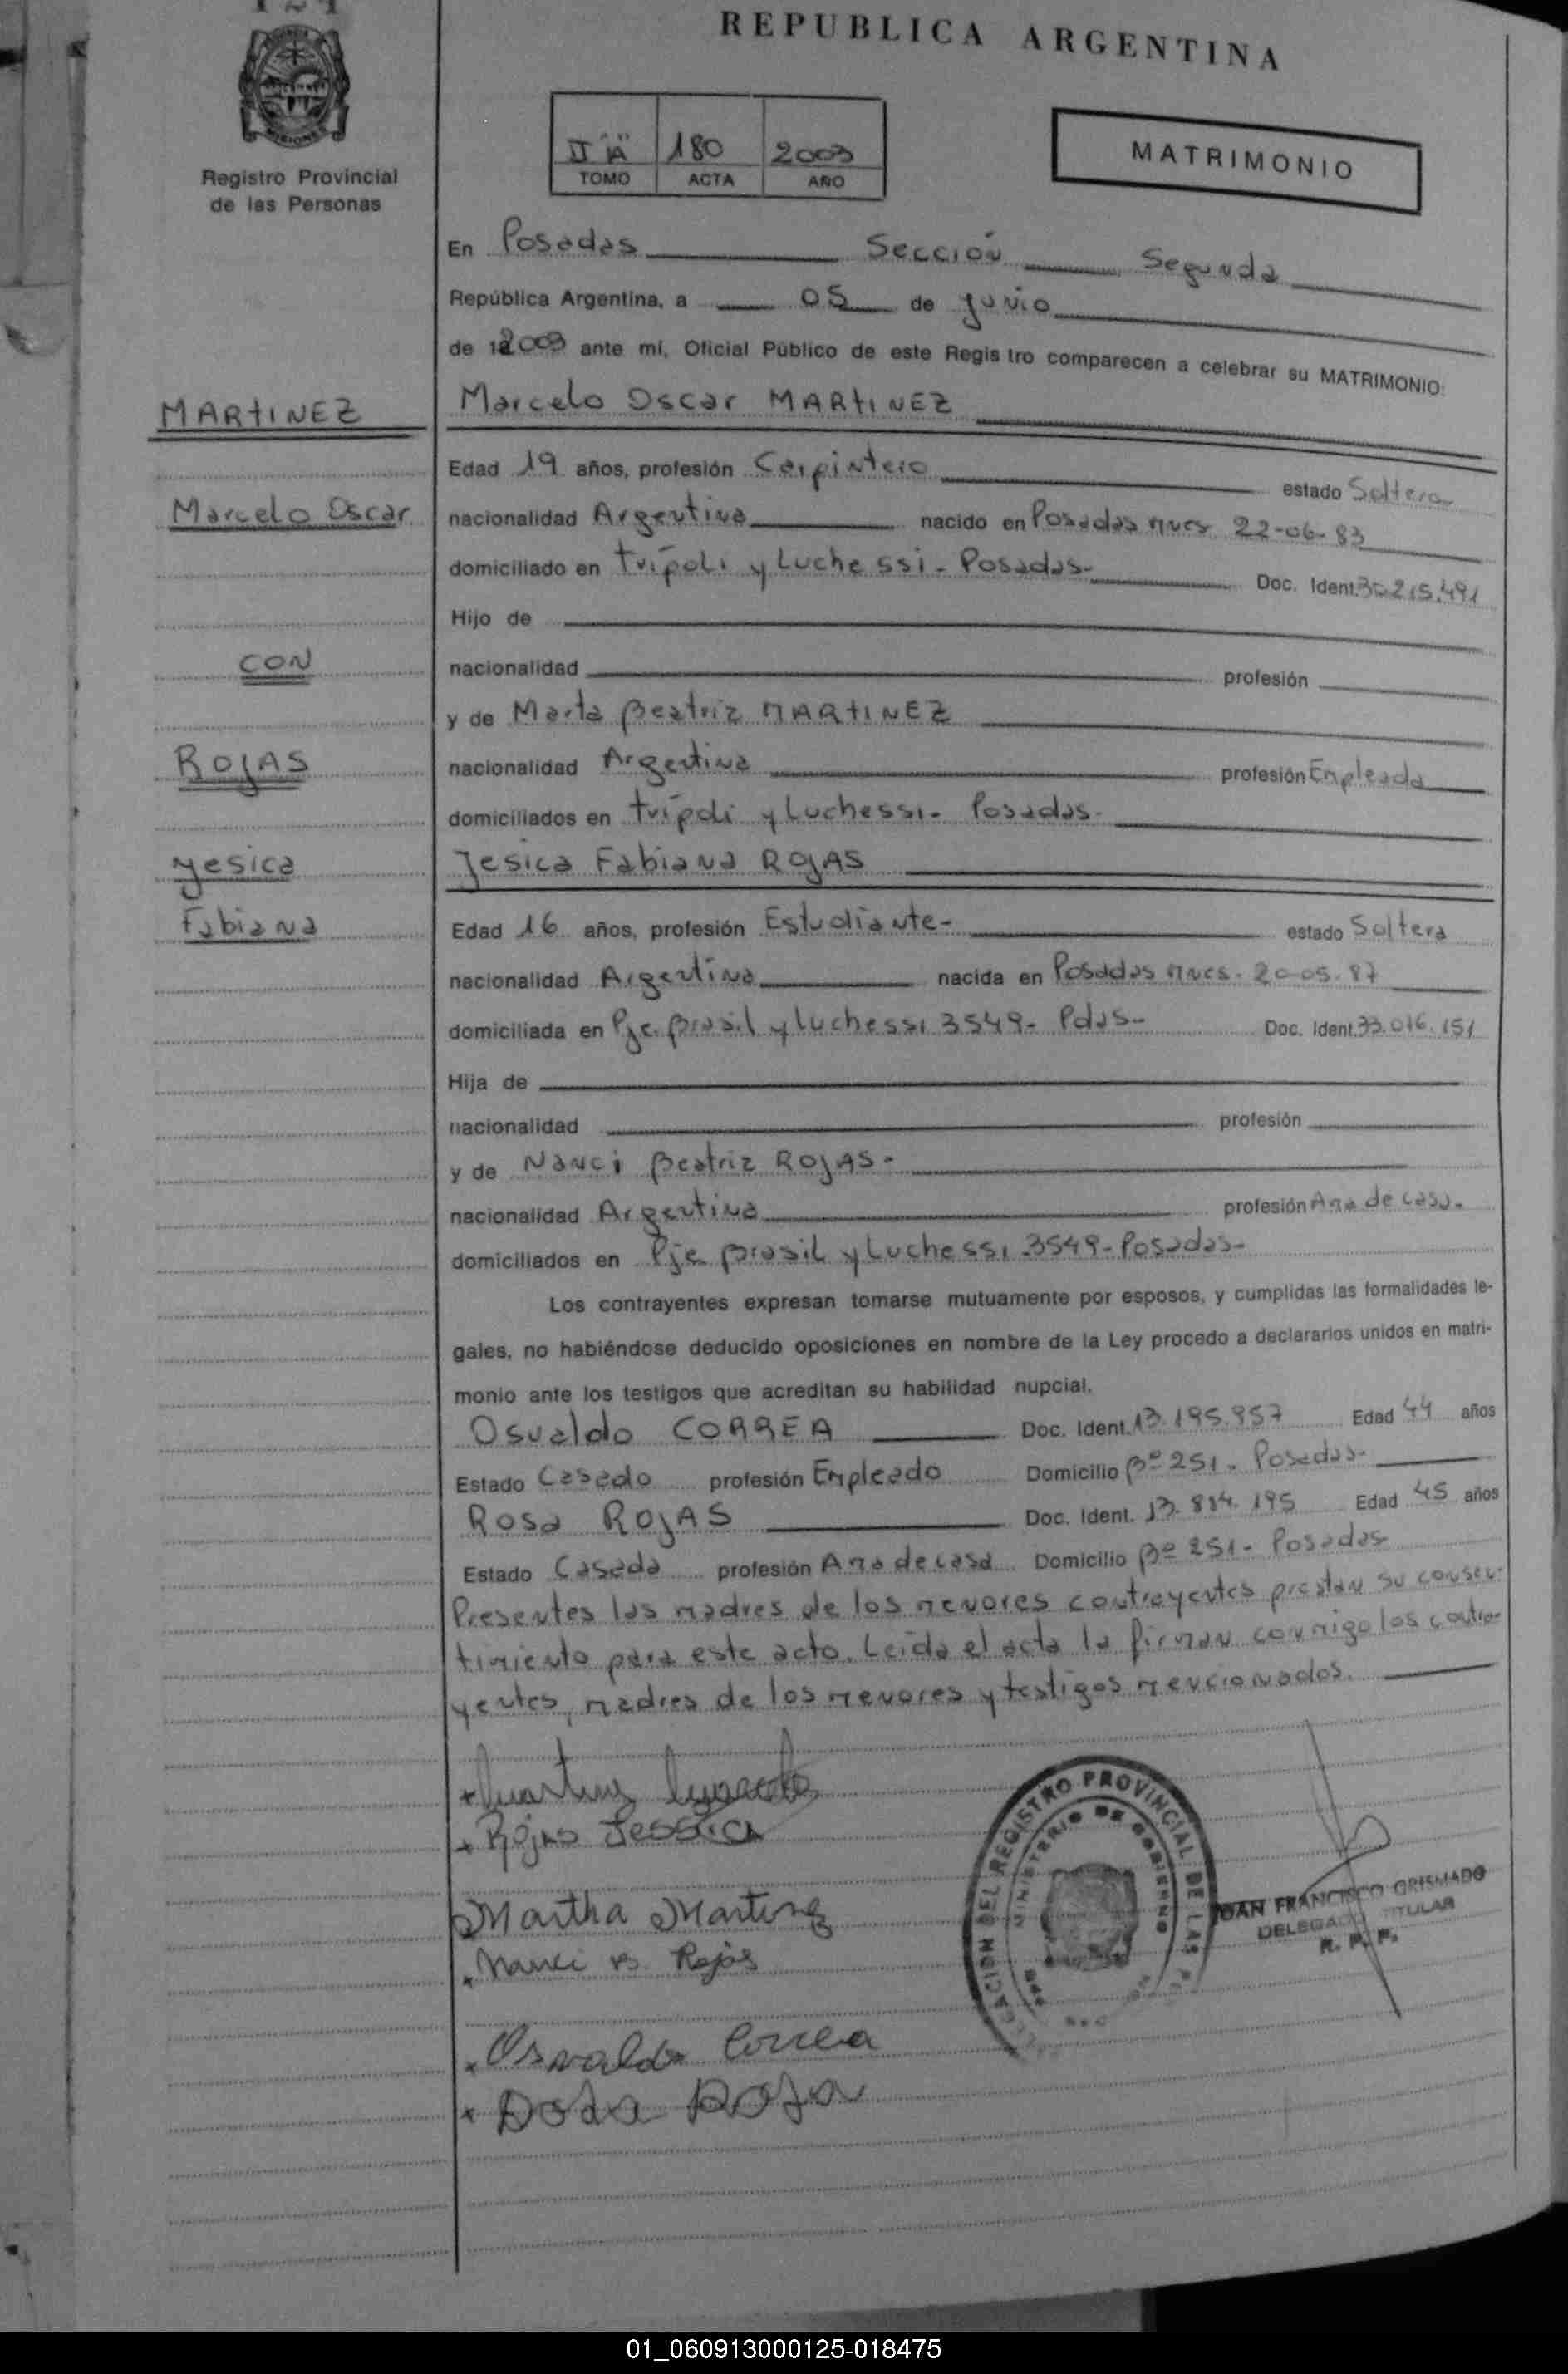 REPUBLICA ARGENTINA
MISIONES
Registro Provincial
de las Personas
II "A" 180 2003
TOMO ACTA AÑO
MATRIMONIO
En Posadas Sección Segunda
República Argentina, a 05 de junio
de 2003 ante mí, Oficial Público de este Registro comparecen a celebrar su MATRIMONIO:
MARTINEZ
Marcelo Oscar MARTINEZ
Edad 19 años, profesión Carpintero estado Soltero
Marcelo Oscar
nacionalidad Argentina nacido en Posadas Mnes. 22-06-83
domiciliado en Trípoli y Luchessi - Posadas - Doc. Ident. 30.215.491
Hijo de
CON
nacionalidad profesión
y de Marta Beatriz MARTINEZ
ROJAS
nacionalidad Argentina profesión Empleada
domiciliados en Trípoli y Luchessi - Posadas -
Yesica
Jesica Fabiana ROJAS
Fabiana
Edad 16 años, profesión Estudiante - estado Soltera
nacionalidad Argentina nacida en Posadas Mnes. 20-05-87
domiciliada en Pje. Brasil y Luchessi 3549 - Pdas - Doc. Ident. 33.016.151
Hija de
nacionalidad profesión
y de Nanci Beatriz ROJAS -
nacionalidad Argentina profesión Ama de casa -
domiciliados en Pje Brasil y Luchessi 3549 - Posadas -
Los contrayentes expresan tomarse mutuamente por esposos, y cumplidas las formalidades le-
gales, no habiéndose deducido oposiciones en nombre de la Ley procedo a declararlos unidos en matri-
monio ante los testigos que acreditan su habilidad nupcial.
Osvaldo CORREA Doc. Ident. 13.195.957 Edad 44 años
Estado Casado profesión Empleado Domicilio Bº 251 - Posadas -
Rosa ROJAS Doc. Ident. 13.814.195 Edad 45 años
Estado Casada profesión Ama de casa Domicilio Bº 251 - Posadas
Presentes las madres de los menores contrayentes prestan su consen-
timiento para este acto. Leída el acta la firman conmigo los contra-
yentes, madres de los menores y testigos mencionados.
Martinez Marcelo
Rojas Jessica
Martha Martinez
Nanci B. Rojas
Osvaldo Correa
Rosa Roja
REGISTRO PROVINCIAL DE LAS
MINISTERIO DE GOBIERNO
JUAN FRANCISCO GRISMADO
DELEGADO TITULAR
R. P. P.
01_060913000125-018475